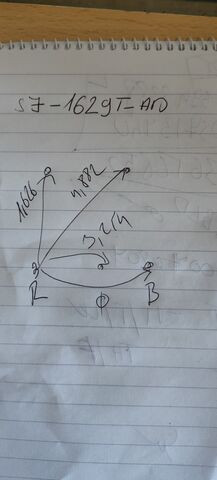 S7-1629T-AD
1,626
4,882
3,254
R
O
B